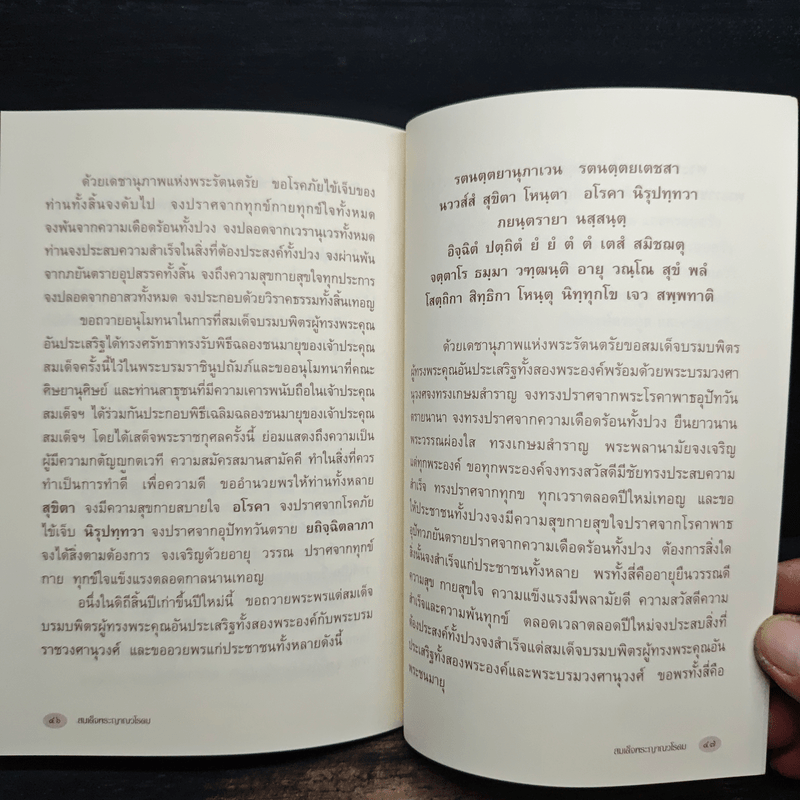 ด้วยเดชานุภาพแห่งพระรัตนตรัย ขอโรคภัยไข้เจ็บของ
ท่านทั้งสิ้นจงดับไป จงปราศจากทุกข์กายทุกข์ใจทั้งหมด
จงพ้นจากความเดือดร้อนทั้งปวง จงปลอดจากเวรานุเวรทั้งหมด
ท่านจงประสบความสำเร็จในสิ่งที่ต้องประสงค์ทั้งปวง จงผ่านพ้น
จากภยันตรายอุปสรรคทั้งสิ้น จงถึงความสุขกายสุขใจทุกประการ
จงปลอดจากอาสวทั้งหมด จงประกอบด้วยวิราคธรรมทั้งสิ้นเทอญ
ขอถวายอนุโมทนาในการที่สมเด็จบรมบพิตรผู้ทรงพระคุณ
อันประเสริฐได้ทรงศรัทธาทรงรับพิธีฉลองชนมายุของเจ้าประคุณ
สมเด็จครั้งนี้ไว้ในพระบรมราชินูปถัมภ์และขออนุโมทนาที่คณะ
ศิษยานุศิษย์ และท่านสาธุชนที่มีความเคารพนับถือในเจ้าประคุณ
สมเด็จฯ ได้ร่วมกันประกอบพิธีเฉลิมฉลองชนมายุของเจ้าประคุณ
สมเด็จฯ โดยได้เสด็จพระราชกุศลครั้งนี้ ย่อมแสดงถึงความเป็น
ผู้มีความกตัญญูกตเวที ความสมัครสมานสามัคคี ทำในสิ่งที่ควร
ทำเป็นการทำดี เพื่อความดี ขออำนวยพรให้ท่านทั้งหลาย
สุขิตา จงมีความสุขกายสบายใจ อโรคา จงปราศจากโรคภัย
ไข้เจ็บ นิรุปทฺทวา จงปราศจากอุปัททวันตราย ยถิจฺฉิตลาภา
จงได้สิ่งตามต้องการ จงเจริญด้วยอายุ วรรณ ปราศจากทุกข์
กาย ทุกข์ใจแข็งแรงตลอดกาลนานเทอญ
อนึ่งในดิถีสิ้นปีเก่าขึ้นปีใหม่นี้ ขอถวายพระพรแต่สมเด็จ
บรมบพิตรผู้ทรงพระคุณอันประเสริฐทั้งสองพระองค์กับพระบรม
ราชวงศานุวงศ์ และขออวยพรแก่ประชาชนทั้งหลายดังนี้
๔๖ สมเด็จพระญาณวโรดม
รตนตฺตยานุภาเวน รตนตฺตยเตชสา
นววสฺสํ สุขิตา โหนฺตา อโรคา นิรุปทฺทวา
ภยนฺตรายา นสฺสนฺตุ
อิจฺฉิตํ ปตฺถิตํ ยํ ยํ ตํ ตํ เตสํ สมิชฌตุ
จตฺตาโร ธมฺมา วฑฺฒนฺติ อายุ วณฺโณ สุขํ พลํ
โสตฺถิกา สิทฺธิกา โหนฺตุ นิททุกโข เจว สพฺพทาติ
ด้วยเดชานุภาพแห่งพระรัตนตรัยขอสมเด็จบรมบพิตร
ผู้ทรงพระคุณอันประเสริฐทั้งสองพระองค์พร้อมด้วยพระบรมวงศา
นุวงศจงทรงเกษมสำราญ จงทรงปราศจากพระโรคาพาธอุปัทวัน
ตรายนานา จงทรงปราศจากความเดือดร้อนทั้งปวง ยืนยาวนาน
พระวรรณผ่องใส ทรงเกษมสำราญ พระพลานามัยจงเจริญ
แด่ทุกพระองค์ ขอทุกพระองค์จงทรงสวัสดีมีชัยทรงประสบความ
สำเร็จ ทรงปราศจากทุกข ทุกเวราตลอดปีใหม่เทอญ และขอ
ให้ประชาชนทั้งปวงจงมีความสุขกายสุขใจปราศจากโรคาพาธ
อุปัทวภยันตรายปราศจากความเดือดร้อนทั้งปวง ต้องการสิ่งใด
สิ่งนั้นจงสำเร็จแก่ประชาชนทั้งหลาย พรทั้งสี่คืออายุยืนวรรณดี
ความสุข กายสุขใจ ความแข็งแรงมีพลามัยดี ความสวัสดีความ
สำเร็จและความพ้นทุกข์ ตลอดเวลาตลอดปีใหม่จงประสบสิ่งที่
ต้องประสงค์ทั้งปวงจงสำเร็จแต่สมเด็จบรมบพิตรผู้ทรงพระคุณอัน
ประเสริฐทั้งสองพระองค์และพระบรมวงศานุวงศ์ ขอพรทั้งสี่คือ
พระชนมายุ
สมเด็จพระญาณวโรดม ๔๗